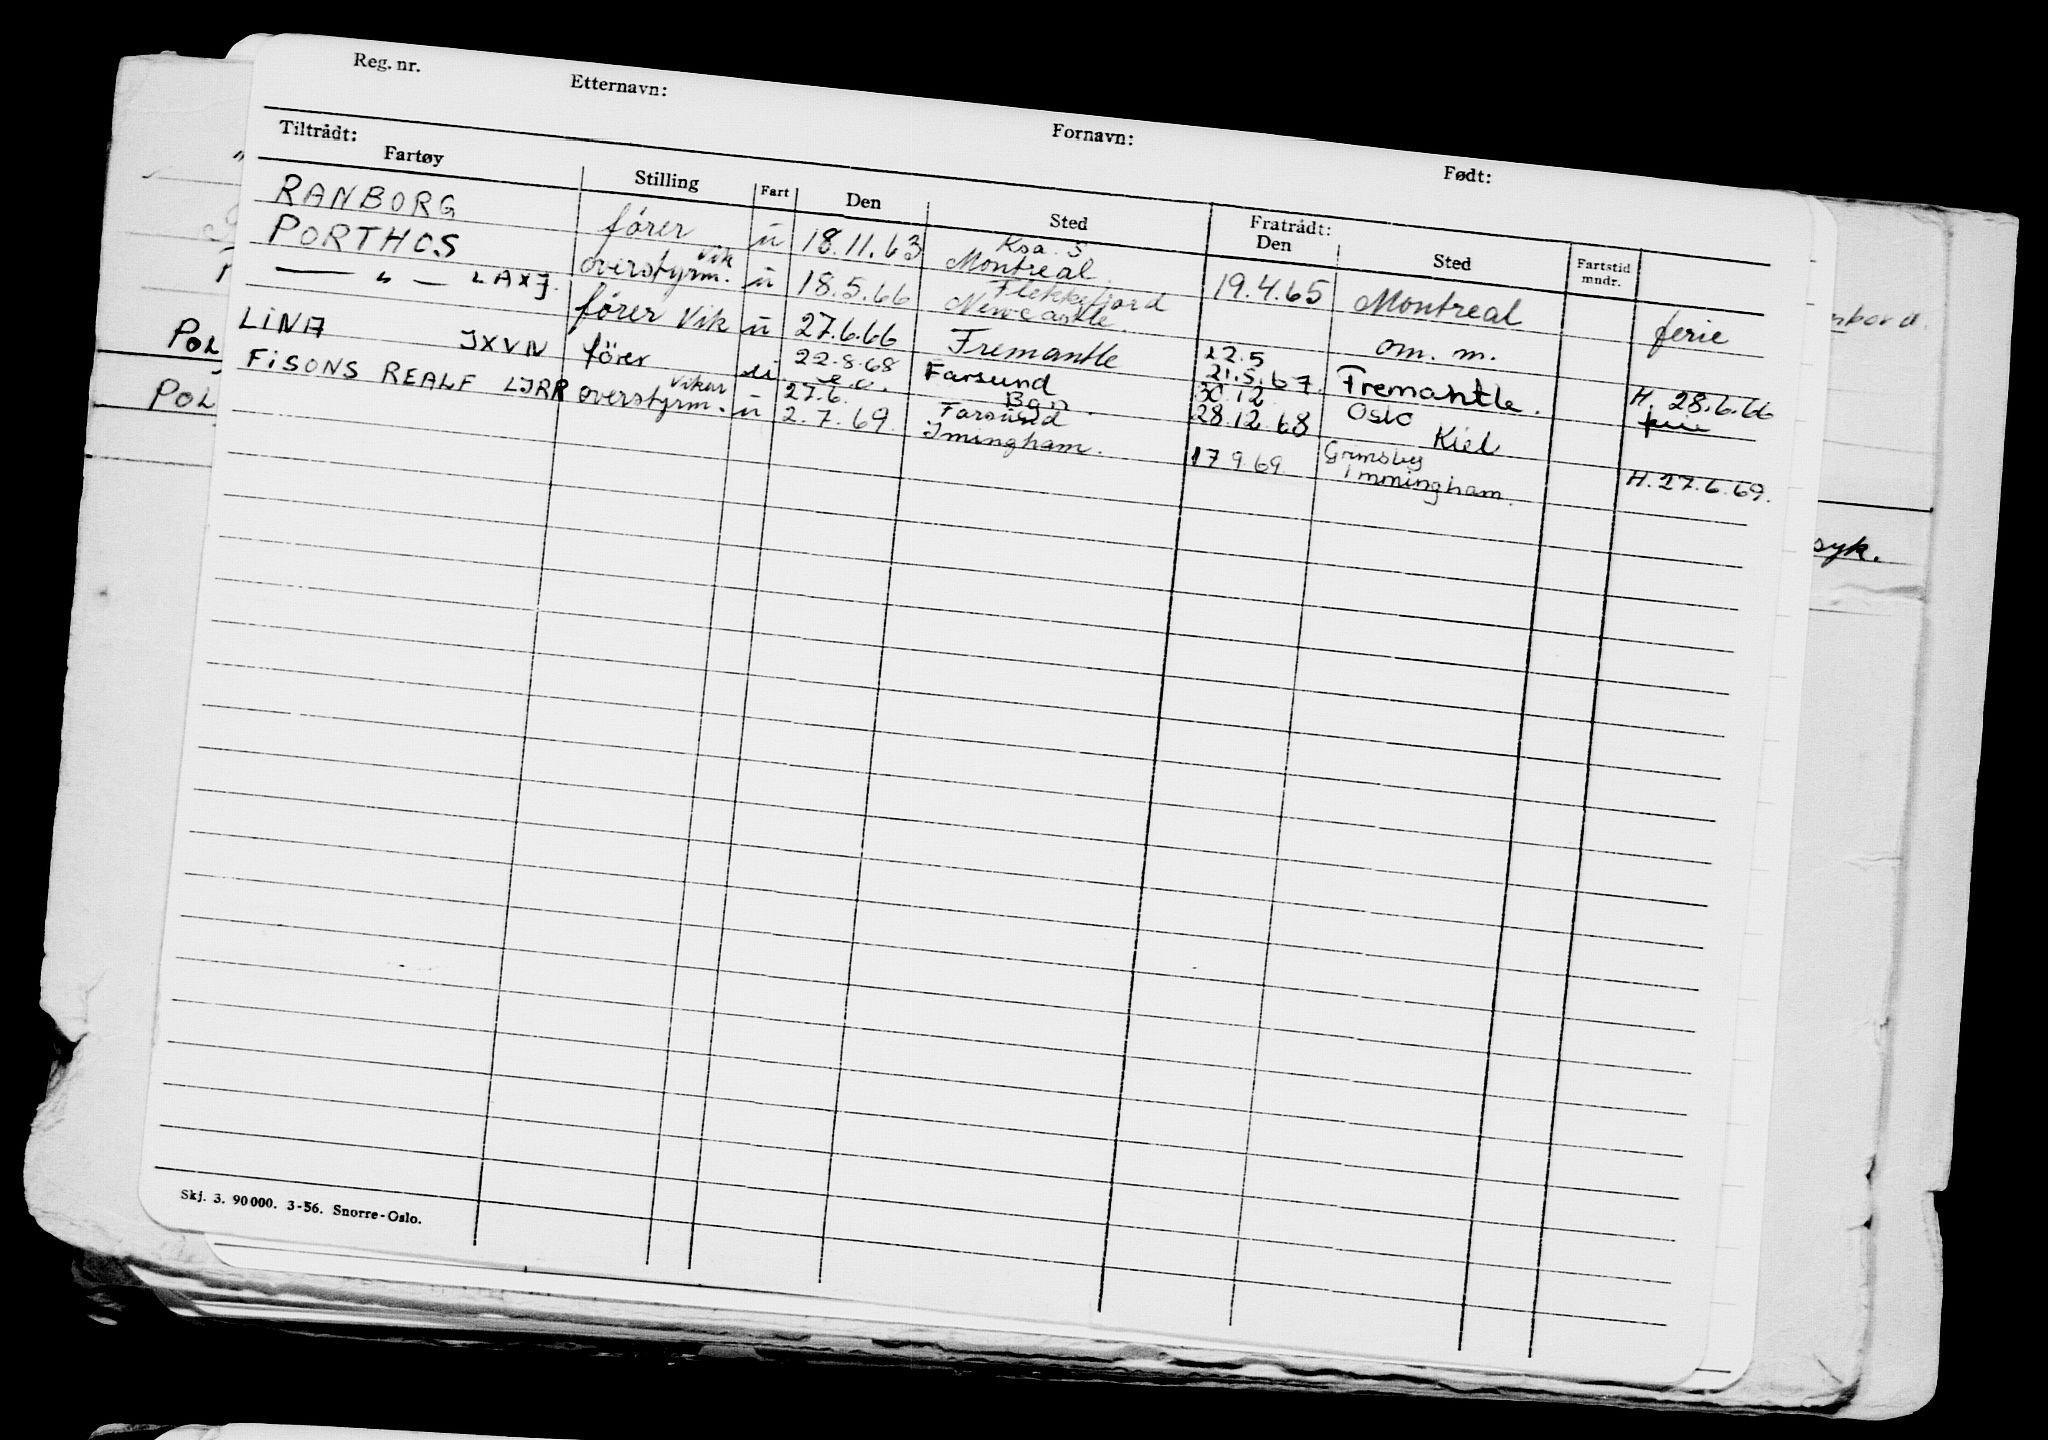 Reg. nr. Etternavn: Fornavn: Født:
Tiltrådt: Fratrådt:
Fartøy Stilling Fart Den Sted Den Sted Fartstid mndr.
RANBORG fører u 18.11.63 Ksa. S Montreal. 19.4.65 Montreal ferie
PORTHOS overstyrm. Vik u 18.5.66 Flekkefjord Newcastle. om. m. H. 28.6.66
— " — LAXJ. fører Vik u 27.6.66 Fremantle 22.5 21.5.67. Fremantle. ferie
LINA JXVN fører u 22.8.68 Farsund 30.12 28.12.68 Oslo Kiel H. 27.6.69.
FISONS REALF LJRR overstyrm. Vikar u 27.6. 2.7.69. Farsund Imingham. 17.9.69 Grimsby Immingham.
POL
POL
syk.
Skj. 3. 90000. 3-56. Snorre-Oslo.